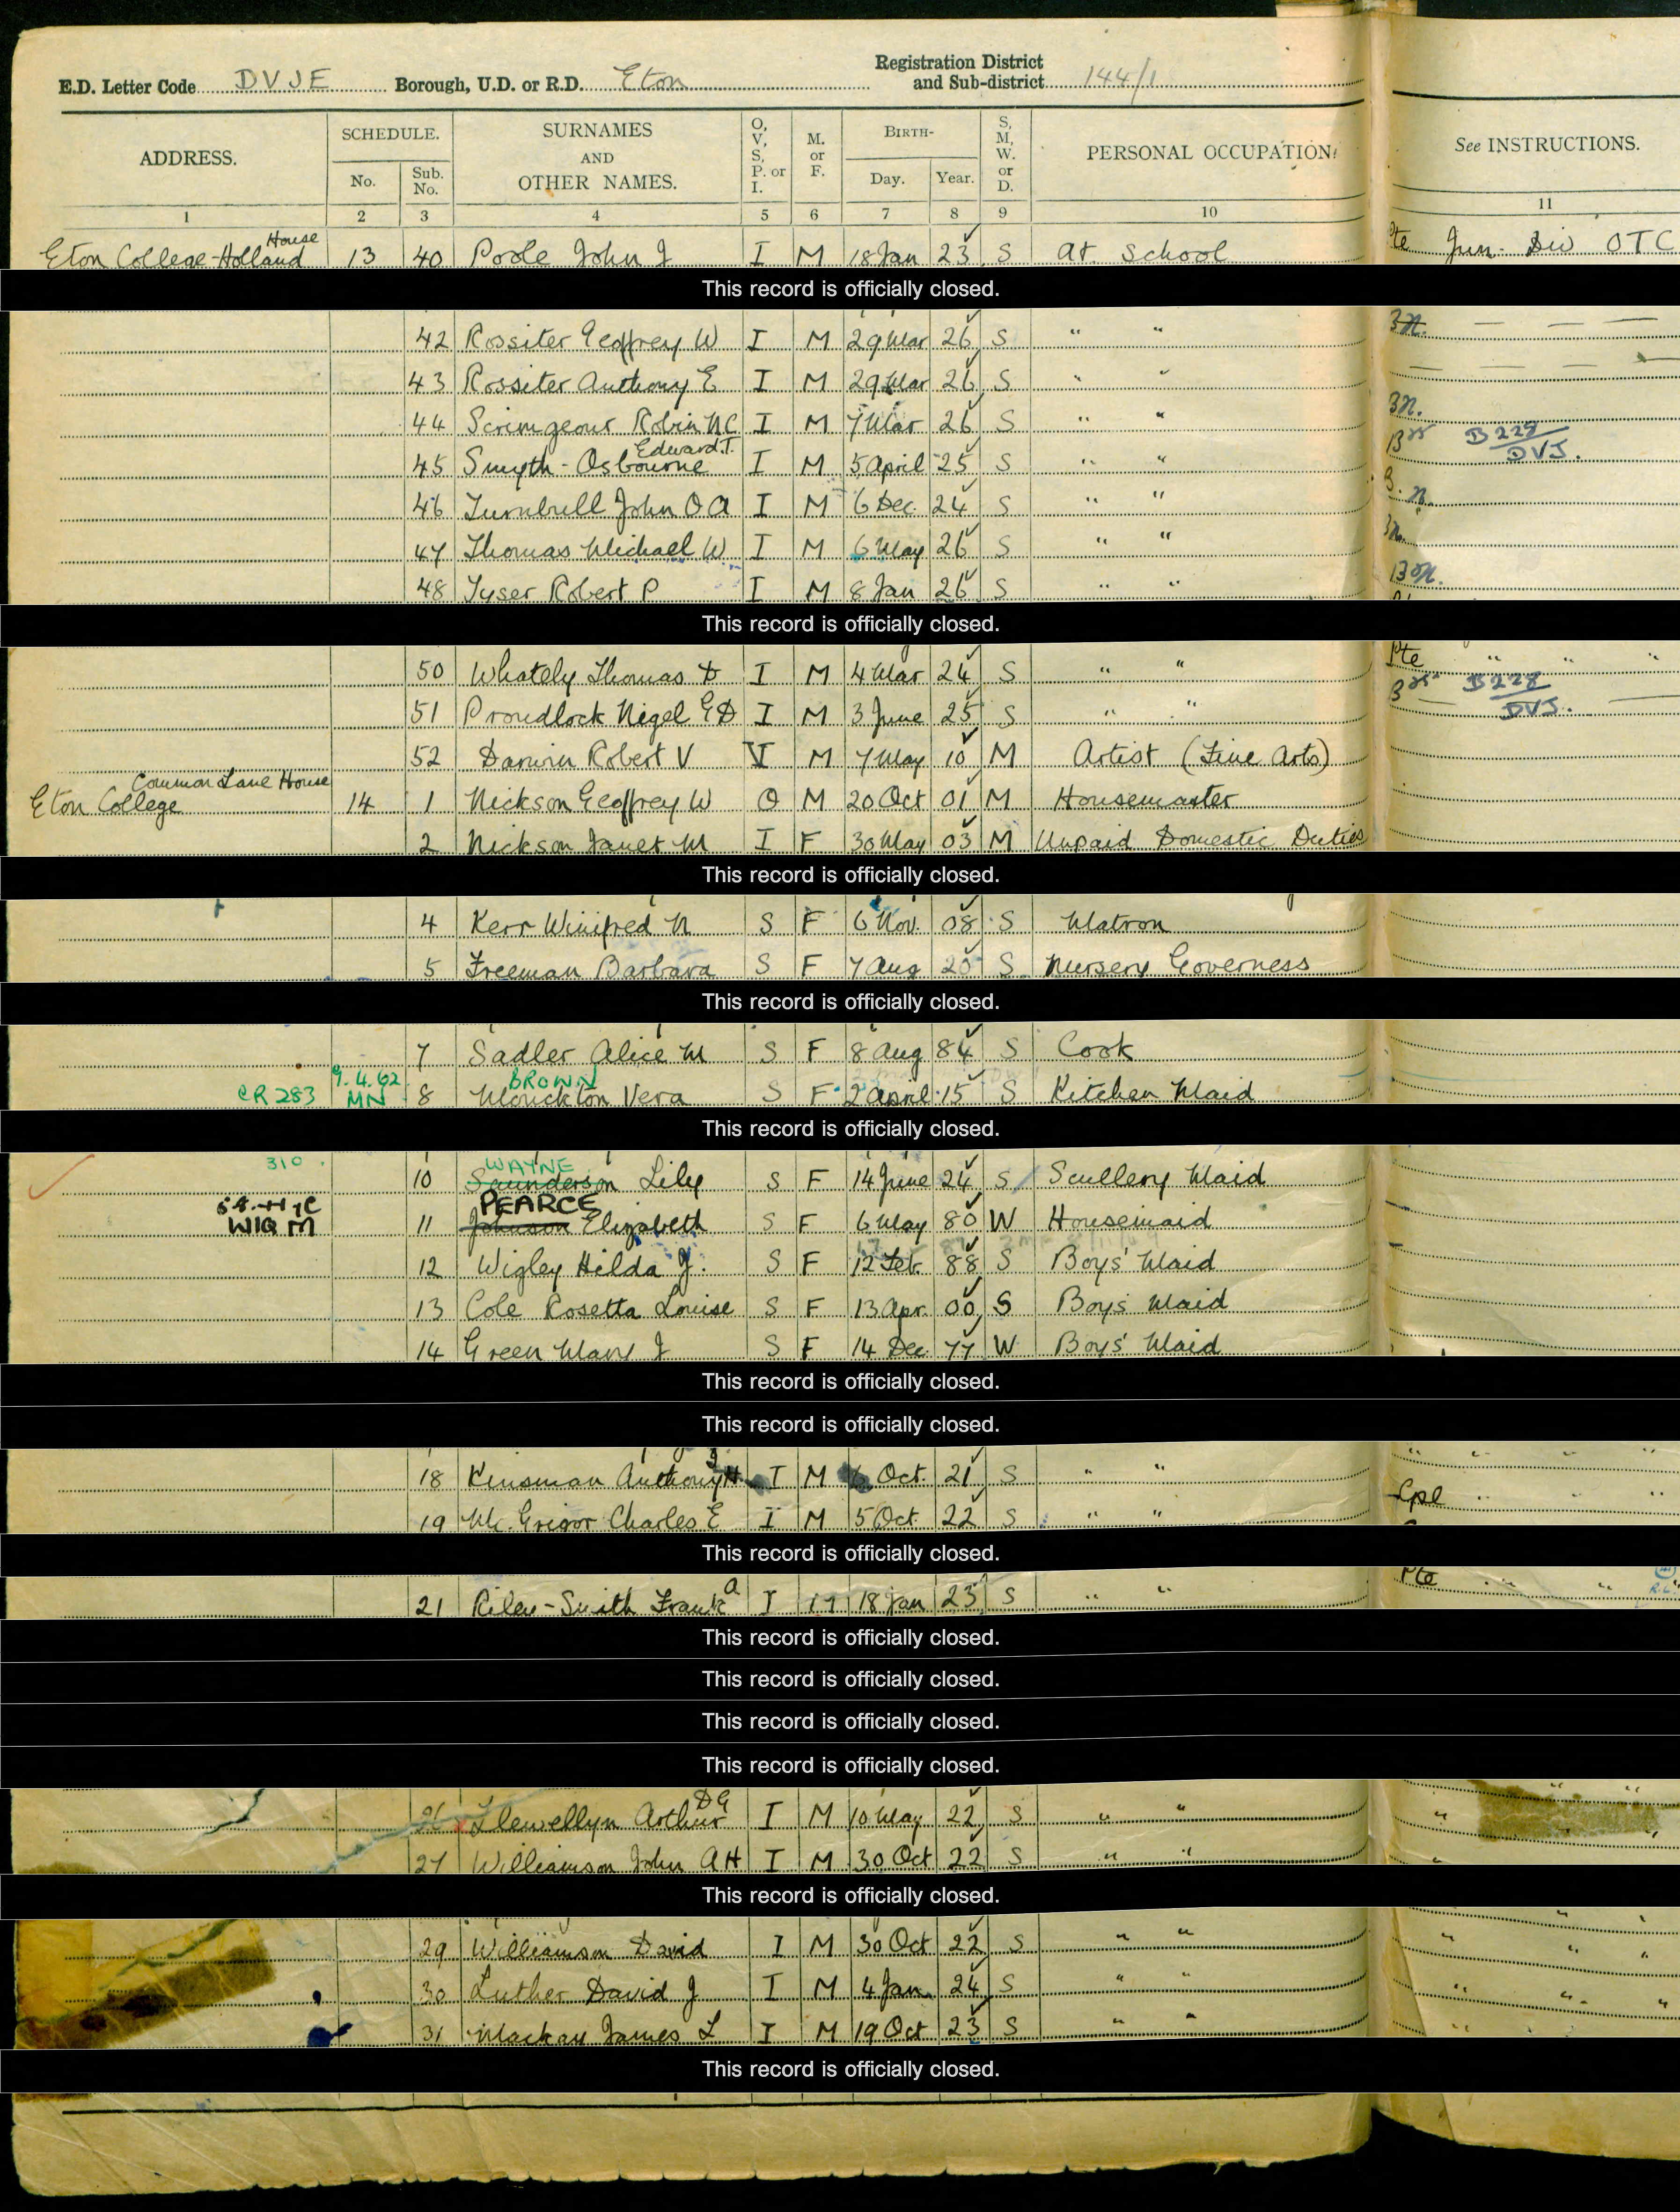 E.D. Letter Code DVJE Borough, U.D. or R.D. Eton Registration District and Sub-district 144/1
ADDRESS. SCHEDULE. No. Sub. No. SURNAMES AND OTHER NAMES. O, V, S, P. or I. M. or F. BIRTH- Day. Year. S, M, W. or D. PERSONAL OCCUPATION. See INSTRUCTIONS.
1 2 3 4 5 6 7 8 9 10 11
Eton College-Holland House 13 40 Poole John J I M 18 Jan 23 S At School Pte Jun. Div OTC
This record is officially closed.
42 Rossiter Geoffrey W I M 29 Mar 26 S " "
43 Rossiter Anthony E I M 29 Mar 26 S " "
44 Scrimgeour Robin N C I M 7 Mar 26 S " "
45 Smyth-Osbourne Edward.T. I M 5 April 25 S " " B228 DVJ.
46 Turnbull John O A I M 6 Dec 24 S " "
47 Thomas Michael W I M 6 May 26 S " "
48 Tyser Robert P I M 8 Jan 26 S " "
This record is officially closed.
50 Whately Thomas D I M 4 Mar 24 S " " Pte " " "
51 Proudlock Nigel G D I M 3 June 25 S " " B228 DVJ.
52 Darwin Robert V V M 7 May 10 M Artist (Fine Arts)
Eton College Common Lane House 14 1 Nickson Geoffrey W O M 20 Oct 01 M Housemaster
2 Nickson Janet M I F 30 May 03 M Unpaid Domestic Duties
This record is officially closed.
4 Kerr Winifred N S F 6 Nov. 08 S Matron
5 Freeman Barbara S F 7 Aug 20 S Nursery Governess
This record is officially closed.
7 Sadler Alice M S F 8 Aug 84 S Cook
CR 283 9.4.62 MN 8 BROWN Monckton Vera S F 2 April 15 S Kitchen Maid
This record is officially closed.
310 10 WAYNE Saunderson Lily S F 14 June 24 S Scullery Maid
WIQ M 11 PEARCE Johnson Elizabeth S F 6 May 80 W Housemaid
12 Wigley Hilda J. S F 12 Feb. 88 S Boys' Maid
13 Cole Rosetta Louise S F 13 Apr. 00 S Boys' Maid
14 Green Mary J S F 14 Dec 77 W Boys' Maid
This record is officially closed.
This record is officially closed.
18 Kinsman Anthony I M Oct. 21 S " "
19 Mc. Grigor Charles E I M 5 Oct. 22 S " " Cpl " "
This record is officially closed.
21 Riley-Smith Frank A I M 18 Jan 23 S " " Pte " " "
This record is officially closed.
This record is officially closed.
This record is officially closed.
This record is officially closed.
26 Llewellyn Arthur D G I M 10 May 22 S " "
27 Williamson John A H I M 30 Oct 22 S " "
This record is officially closed.
29 Williamson David I M 30 Oct 22 S " "
30 Luther David J I M 4 Jan 24 S " "
31 Mackay James L I M 19 Oct 23 S " "
This record is officially closed.